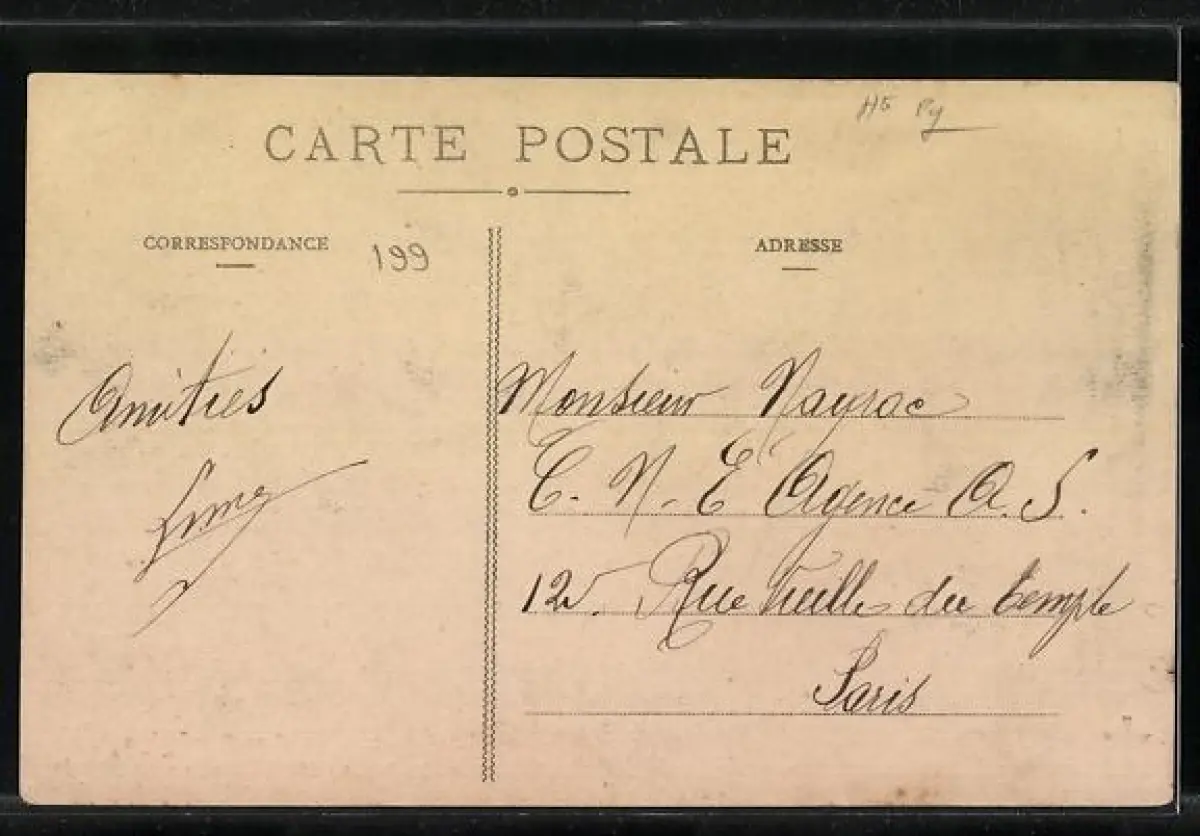 CARTE POSTALE
CORRESPONDANCE
199
Amitiés
ADRESSE
Monsieur Nayrac
C. N. E Agence A. S.
12 Rue Vieille du temple
Paris